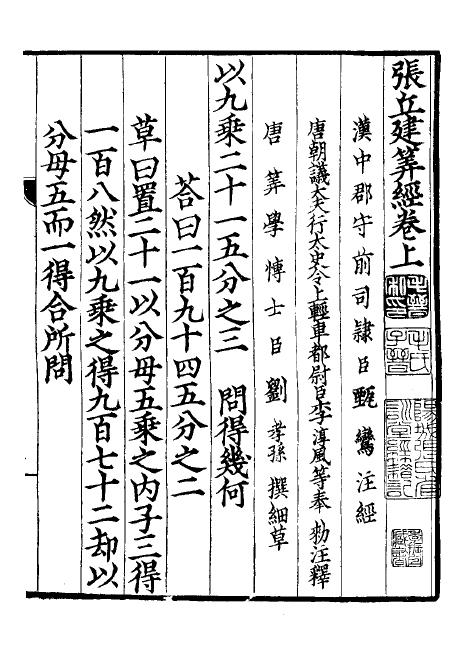 張丘建筭經卷上
漢中郡守前司隸臣甄鸞注經
唐朝議大夫行太史令上輕車都尉臣李淳風等奉勑注釋
唐筭學博士臣劉孝孫撰細草
以九乘二十一五分之三　問得幾何
荅曰一百九十四五分之二
草曰置二十一以分母五乘之内子三得
一百八然以九乘之得九百七十二却以
分母五而一得合所問
毛氏
子晉